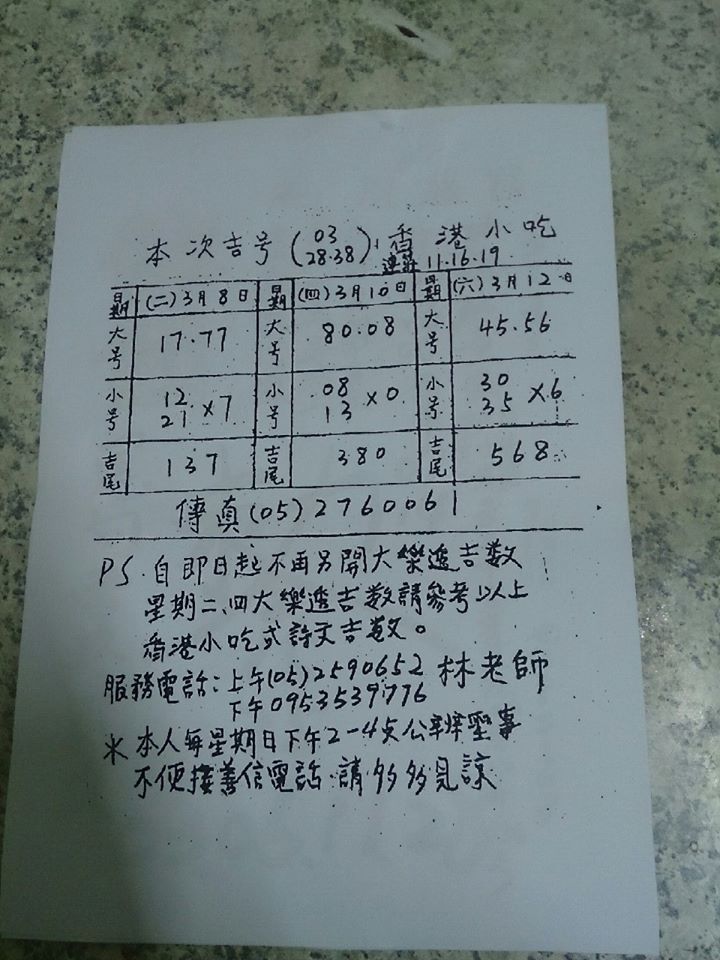 本次吉号(03 28.38) 香港小吃
連莊 11.16.19
星期 (二)3月8日 星期 (四)3月10日 星期 (六)3月12日
大号 17.77 大号 80.08 大号 45.56
小号 12 21 x7 小号 08 13 x0 小号 30 35 x6
吉尾 137 吉尾 380 吉尾 568
傳真(05)2760061
PS.自即日起不再另開大樂透吉數
星期二、四大樂透吉數請參考以上
香港小吃式詩文吉數。
服務電話:上午(05)2590652 林老師
下午0953539776
*本人每星期日下午2-4点公辦聖事
不便接善信電話.請多多見諒